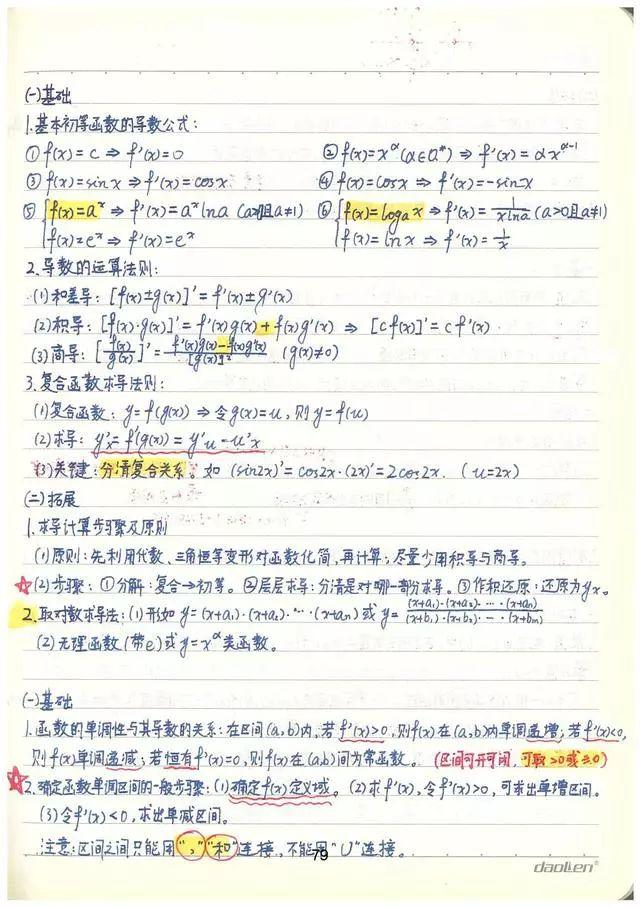 (一)基础
1.基本初等函数的导数公式:
① f(x)=c ⇒ f'(x)=0 ② f(x)=x^α (α∈Q*) ⇒ f'(x)=αx^(α-1)
③ f(x)=sinx ⇒ f'(x)=cosx ④ f(x)=cosx ⇒ f'(x)=-sinx
⑤ { f(x)=a^x ⇒ f'(x)=a^x lna (a>0且a≠1) ⑥ { f(x)=log_a x ⇒ f'(x)=1/(xlna) (a>0且a≠1)
f(x)=e^x ⇒ f'(x)=e^x f(x)=lnx ⇒ f'(x)=1/x
2.导数的运算法则:
(1)和差导: [f(x)±g(x)]'=f'(x)±g'(x)
(2)积导: [f(x)·g(x)]'=f'(x)g(x)+f(x)g'(x) ⇒ [cf(x)]'=cf'(x)
(3)商导: [f(x)/g(x)]'=(f'(x)g(x)-f(x)g'(x))/[g(x)]² (g(x)≠0)
3.复合函数求导法则:
(1)复合函数: y=f(g(x)) ⇒ 令g(x)=u, 则y=f(u)
(2)求导: y'x=f'(g(x))=y'u-u'x
(3)关键: 分清复合关系。如 (sin2x)'=cos2x·(2x)'=2cos2x. (u=2x)
(二)拓展
1.求导计算步骤及原则
(1)原则:先利用代数、三角恒等变形对函数化简,再计算;尽量少用积导与商导。
☆(2)步骤: ①分解:复合→初等。②层层求导:分清是对哪一部分求导。③作积还原:还原为yx。
2.取对数求导法: (1)形如 y=(x+a₁)·(x+a₂)·…·(x+an) 或 y=((x+a₁)·(x+a₂)·…·(x+an))/((x+b₁)·(x+b₂)·…·(x+bm))
(2)无理函数(带e)或 y=x^α 类函数。
(一)基础
1.函数的单调性与其导数的关系:在区间(a,b)内,若f'(x)>0,则f(x)在(a,b)内单调递增;若f'(x)<0,
则f(x)单调递减;若恒有f'(x)=0,则f(x)在(a,b)间为常函数。(区间可开可闭,可取>0或≥0)
☆2.确定函数单调区间的一般步骤: (1)确定f(x)定义域。(2)求f'(x),令f'(x)>0,可求出单增区间。
(3)令f'(x)<0,求出单减区间。
注意:区间之间只能用“,”“和”连接,不能用“∪”连接。
79
daolien®